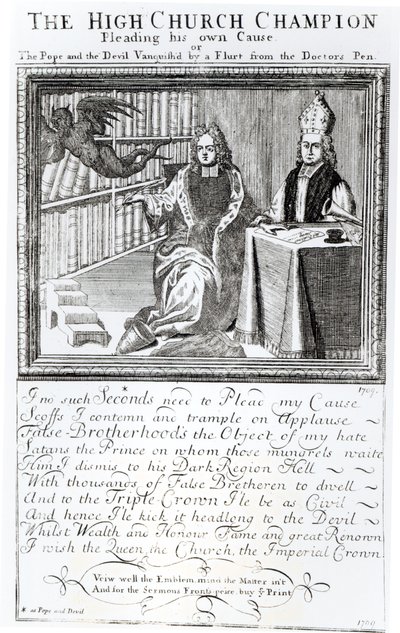 THE HIGH CHURCH CHAMPION
Pleading his own Cause.
or
The Pope and the Devil Vanquish'd by a Flurt from the Doctors Pen.
1709.
I no such Se*conds need to Plead my Cause
Scoffs I contemn and trample on Applause ~
False-Brotherhood's the Object of my hate
Satans the Prince on whom those mungrels waite
Him I dismis to his Dark Region Hell ~ ~
With thousands of False Bretheren to dwell ~
And to the Triple Crown I'le be as Civil ~
And hence I'le kick it headlong to the Devil ~
Whilst Wealth and Honour Fame and great Renown
I wish the Queen, the Church, the Imperial Crown.
Veiw well the Emblem mind the Matter in't
And for the Sermons Frontispeice buy ye Print
* as Pope and Devil
1709